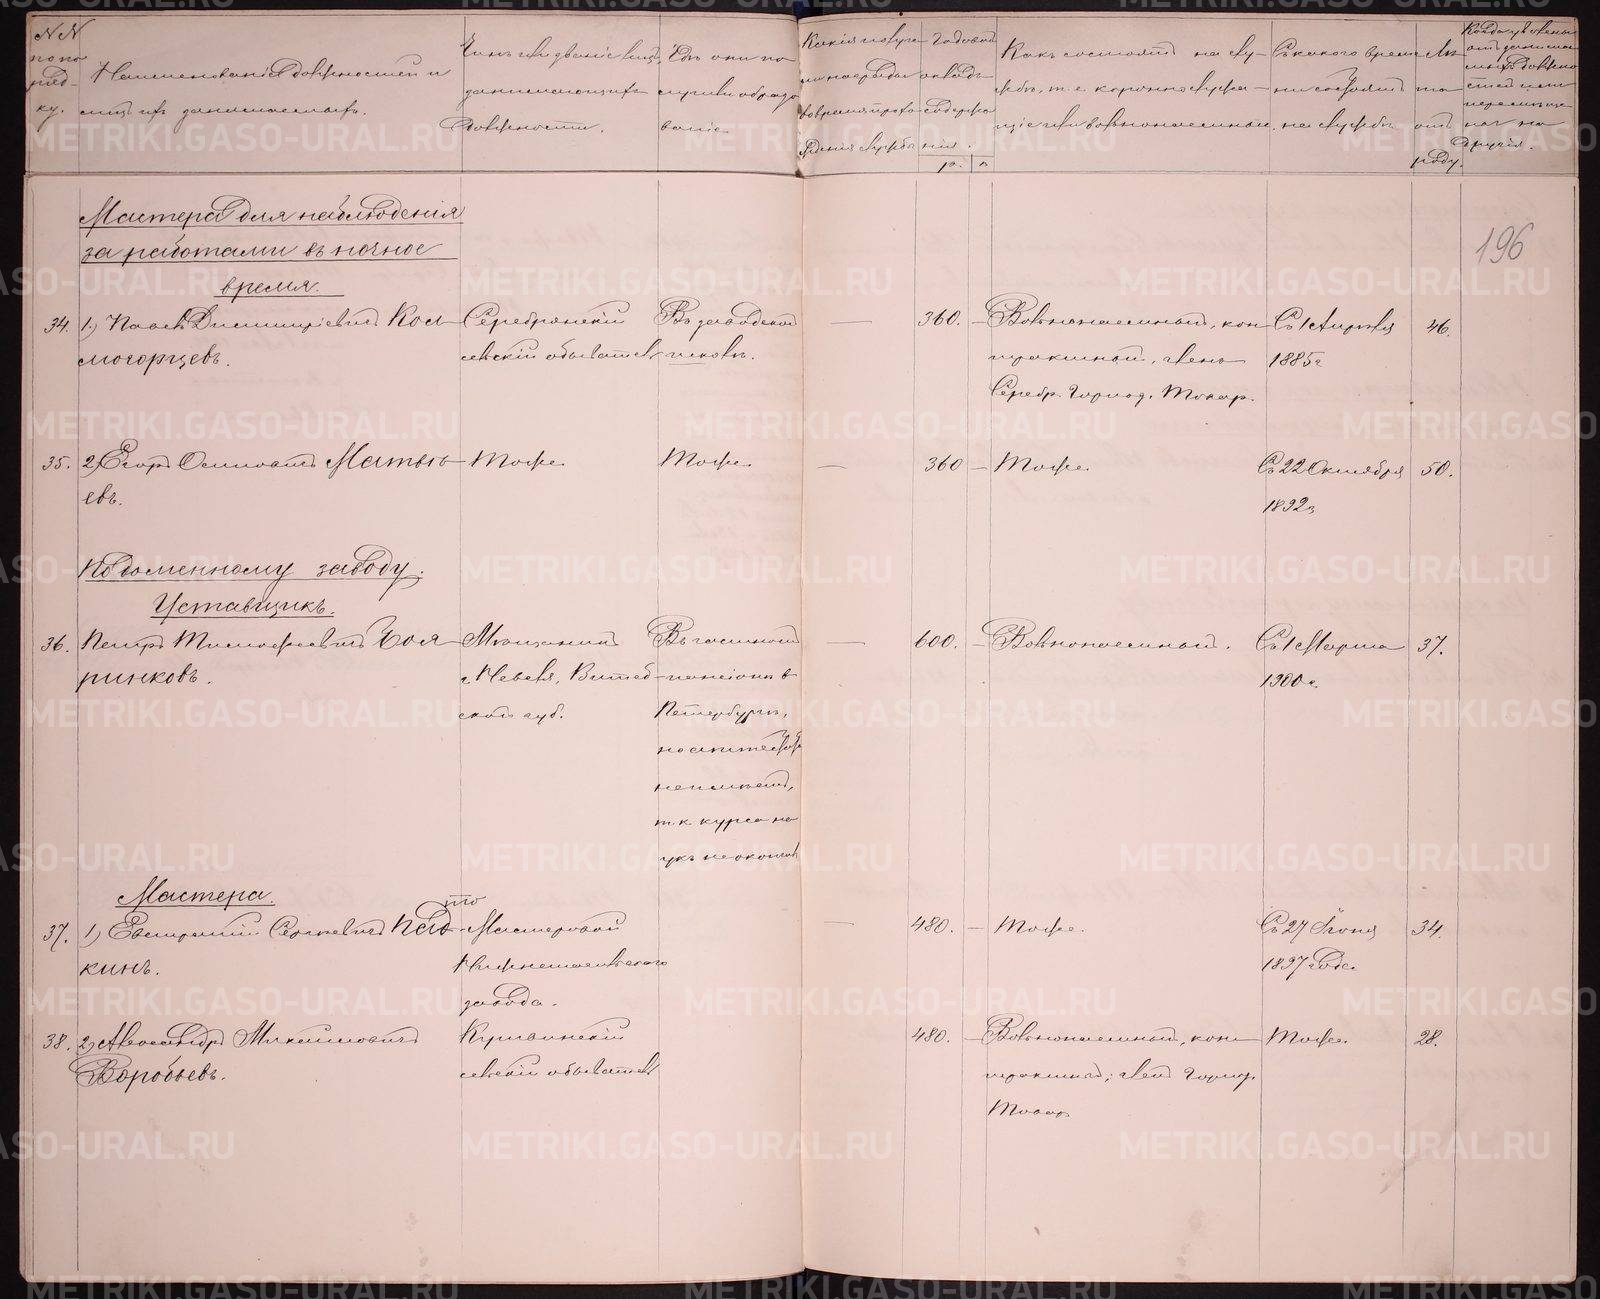 NN
по по
ряд-
ку.
Наименованіе должностей и
лицъ ихъ занимающихъ.
Чинъ или званіе лицъ,
занимающихъ
должности.
Гдѣ они по
лучили образо
ваніе.
Какія получи
ли награды
во время прохо
жденія службы
Годовой
окладъ
содержа
нія.
р. к.
Какъ состоятъ на слу-
жбѣ, т.е. коронно служа-
щіе или вольнонаемные.
Съ какого време
ни состоятъ
на службѣ
Лѣ
та
отъ
роду.
Когда уволены
отъ занима
емыхъ должно
стей или
перемѣще
ны на
другія.
196
Мастера для наблюденія
за работами въ ночное
время.
34. 1) Павелъ Дмитріевичъ Кол-
могорцевъ.
Серебрянскій
сельскій обыватель
Въ заводской
школѣ.
— 360. —
Вольнонаемный, кон-
трактный, членъ
Серебр. Горнозав. Товар.
Съ 1 Апрѣля
1885 г
46.
35. 2) Егоръ Осиповичъ Матвѣ-
евъ.
Тоже.
Тоже.
— 360 —
Тоже.
Съ 22 Октября
1892 г
50.
По доменному заводу.
Уставщикъ.
36. Петръ Тимофеевичъ Боя-
ринковъ.
Мѣщанинъ
г. Невеля, Витеб-
ской губ.
Въ частномъ
пансіонѣ въ
Петербургѣ,
но аттестата
не имѣетъ,
т.к. курса на
укъ не окончилъ
— 600. —
Вольнонаемный.
Съ 1 Марта
1900 г.
37.
Мастера.
37. 1) Евстратій Сергѣевичъ Пав
кинъ.
Мастеровой
Нижнетагильского
завода.
— 480. —
Тоже.
Съ 27 Іюня
1897 года.
34.
38. 2) Александръ Михайловичъ
Воробьевъ.
Кушвинскій
сельскій обыватель
480. —
Вольнонаемный, кон-
трактный; членъ Горноз.
Товар.
Тоже.
28.
METRIKI.GASO-URAL.RU